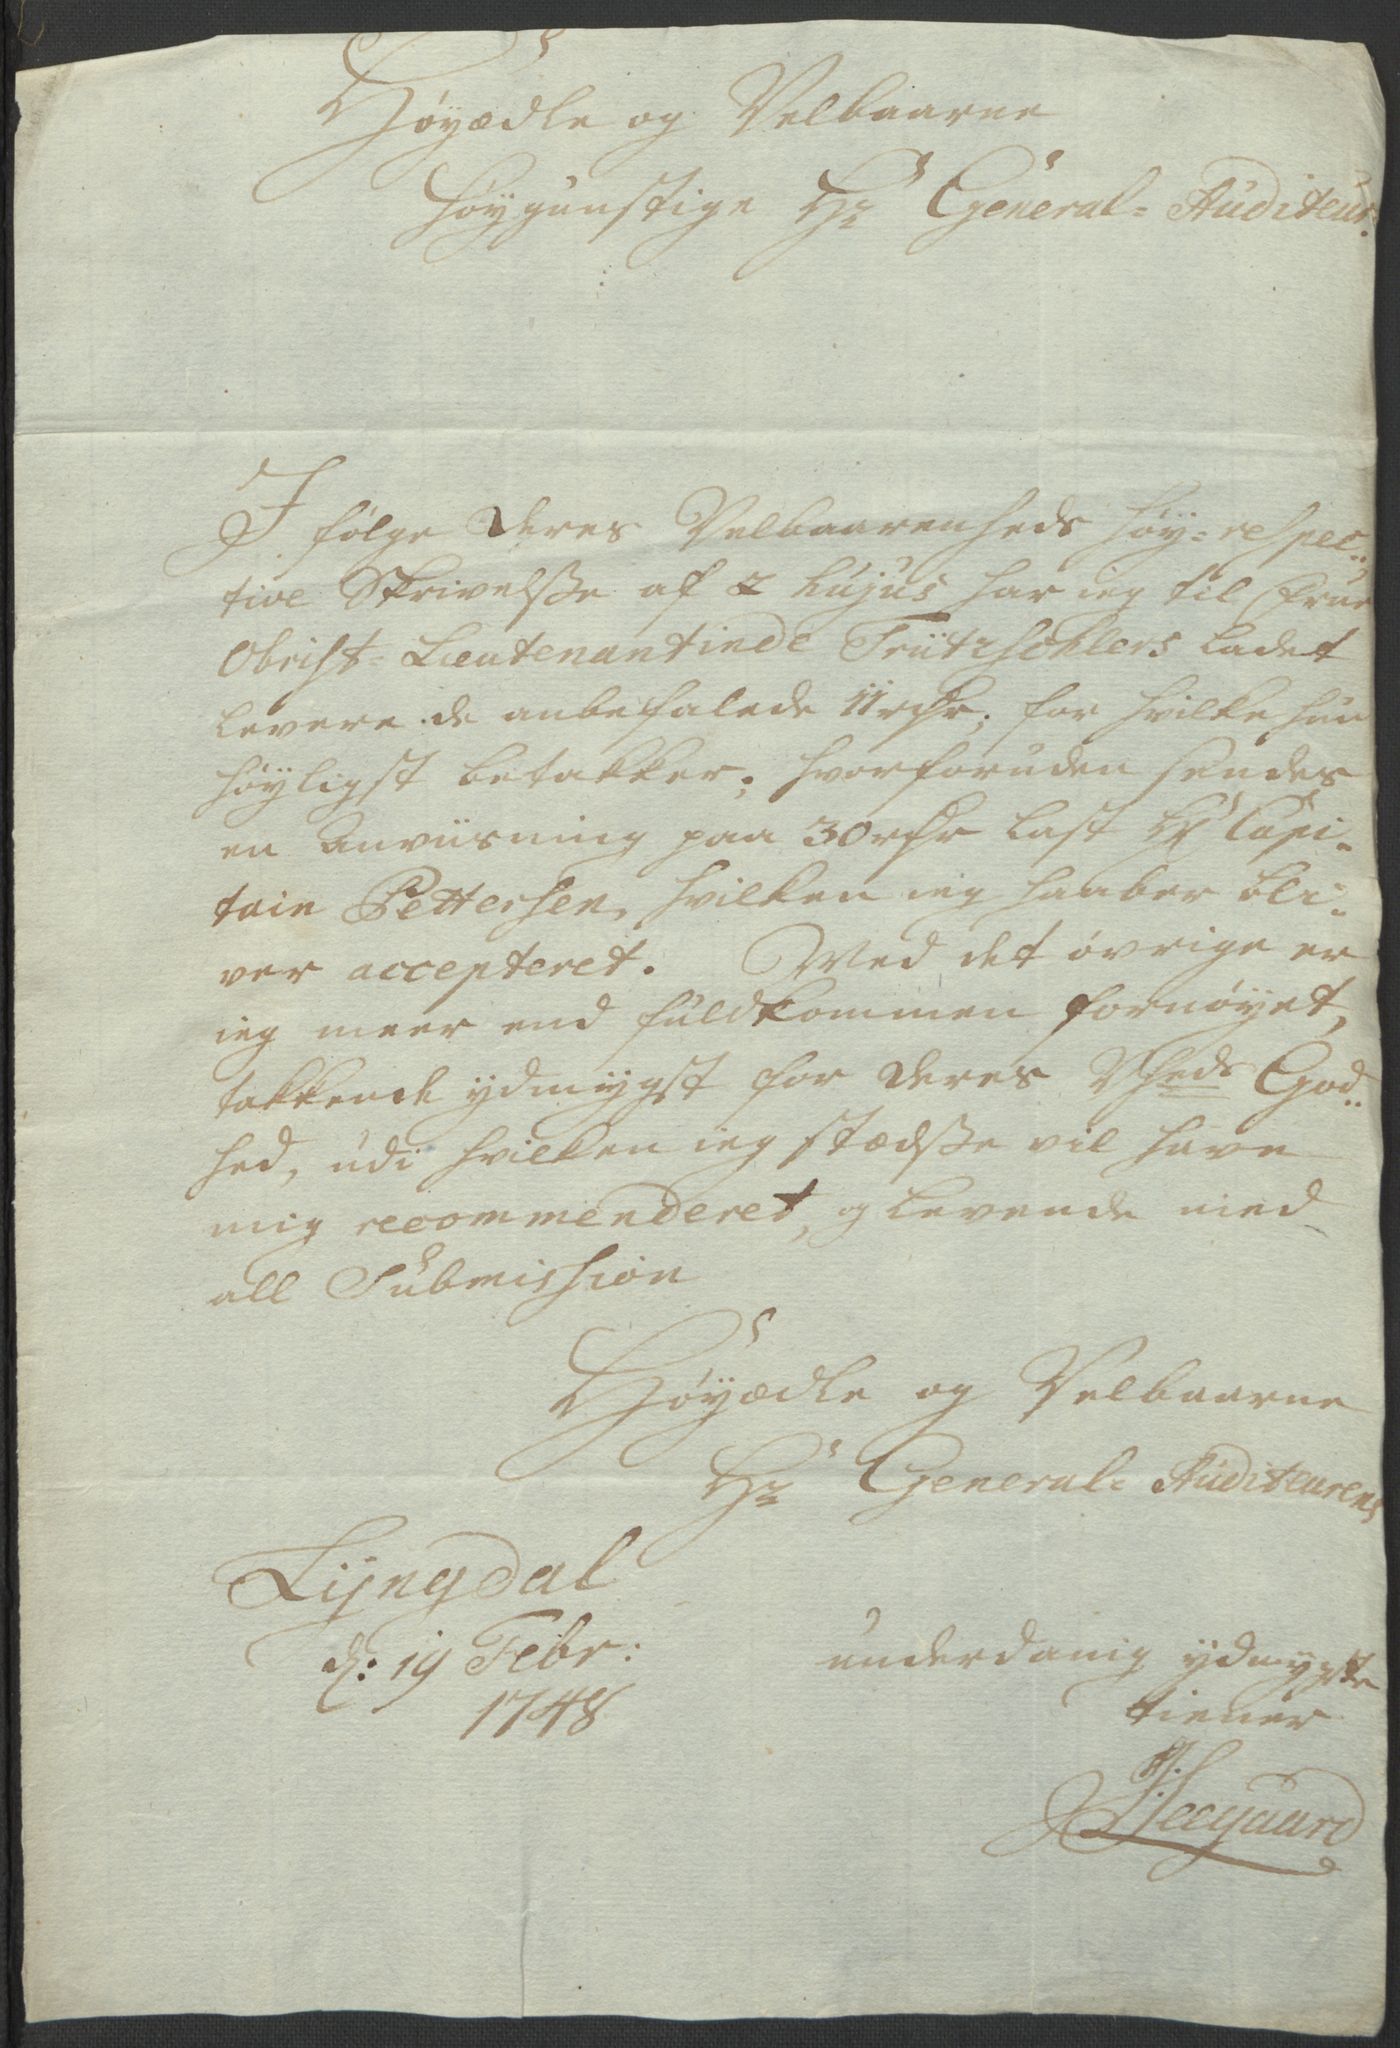 Høyædle og Velbaarne
Høygunstige Hr General-Auditeur.
I følge Deres Velbaarenheds høy-respec-
tive Skrivelsse af 2 hujus har ieg til Frue
Obrist-Lieutenantinde Trützschlers ladet
levere de anbefalede 11 rdr, for hvilke hun
høyligst betakker; hvorforuden sendes
en Anviisning paa 30 rdr last Hr Capi-
tain Pettersen, hvilken ieg haaber bli-
ver accepteret. Med det øvrige er
ieg meer end fuldkommen fornøyet,
takkende ydmygst for Deres Vheds God-
hed, udi hvilken ieg stædsse vil have
mig recommenderet, og levende med
all Submission
Høyædle og Velbaarne
Hr General-Auditeurens
Lyngdal
d: 19 Febr:
1748
underdanig ydmygste
tiener
Heegaard